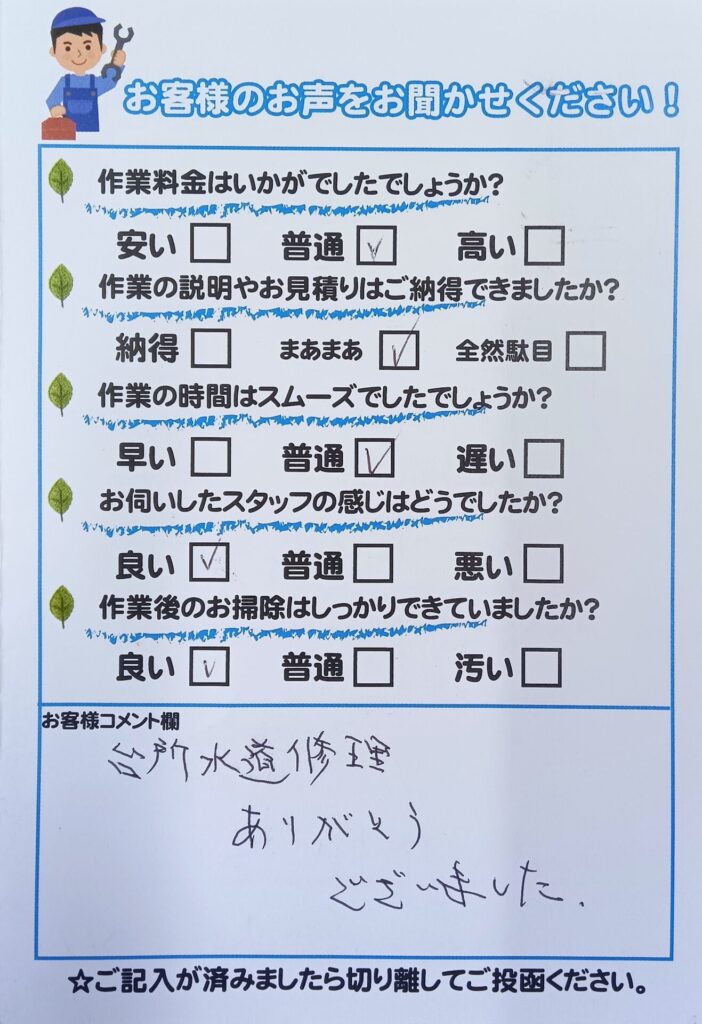 お客様のお声をお聞かせください！
作業料金はいかがでしたでしょうか？
安い 普通 高い
作業の説明やお見積りはご納得できましたか？
納得 まあまあ 全然駄目
作業の時間はスムーズでしたでしょうか？
早い 普通 遅い
お伺いしたスタッフの感じはどうでしたか？
良い 普通 悪い
作業後のお掃除はしっかりできていましたか？
良い 普通 汚い
お客様コメント欄
台所水道修理
ありがとう
ございました.
☆ご記入が済みましたら切り離してご投函ください。